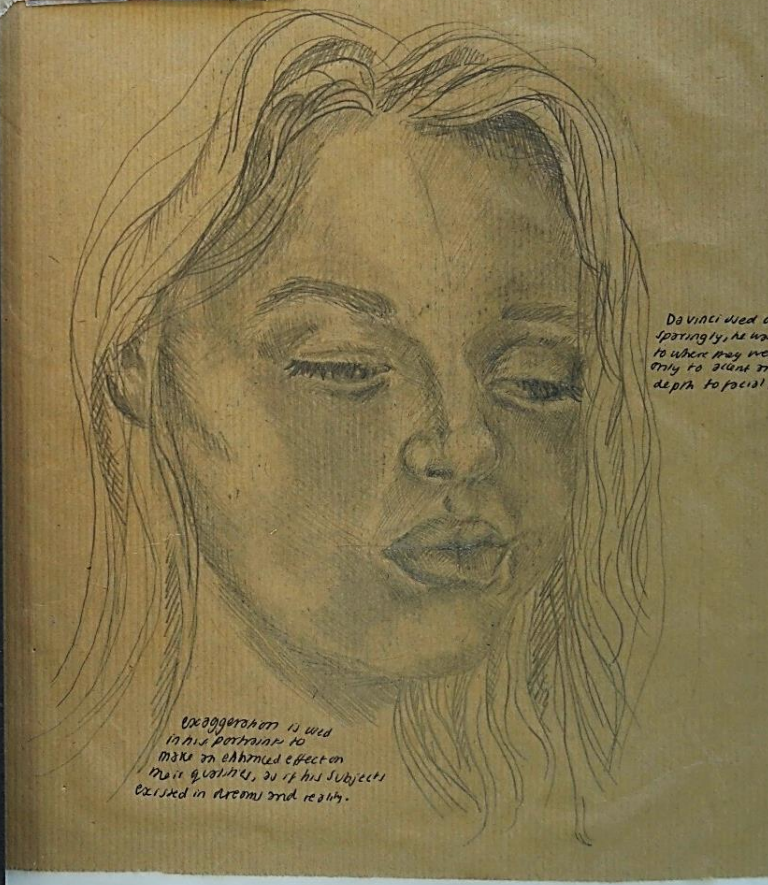 Da vinci used
sparingly, he
to where they
only to accent
depth to facial
exaggeration is used
in his portraits to
make an enhanced effect on
their qualities, as if his subjects
existed in dreams and reality.